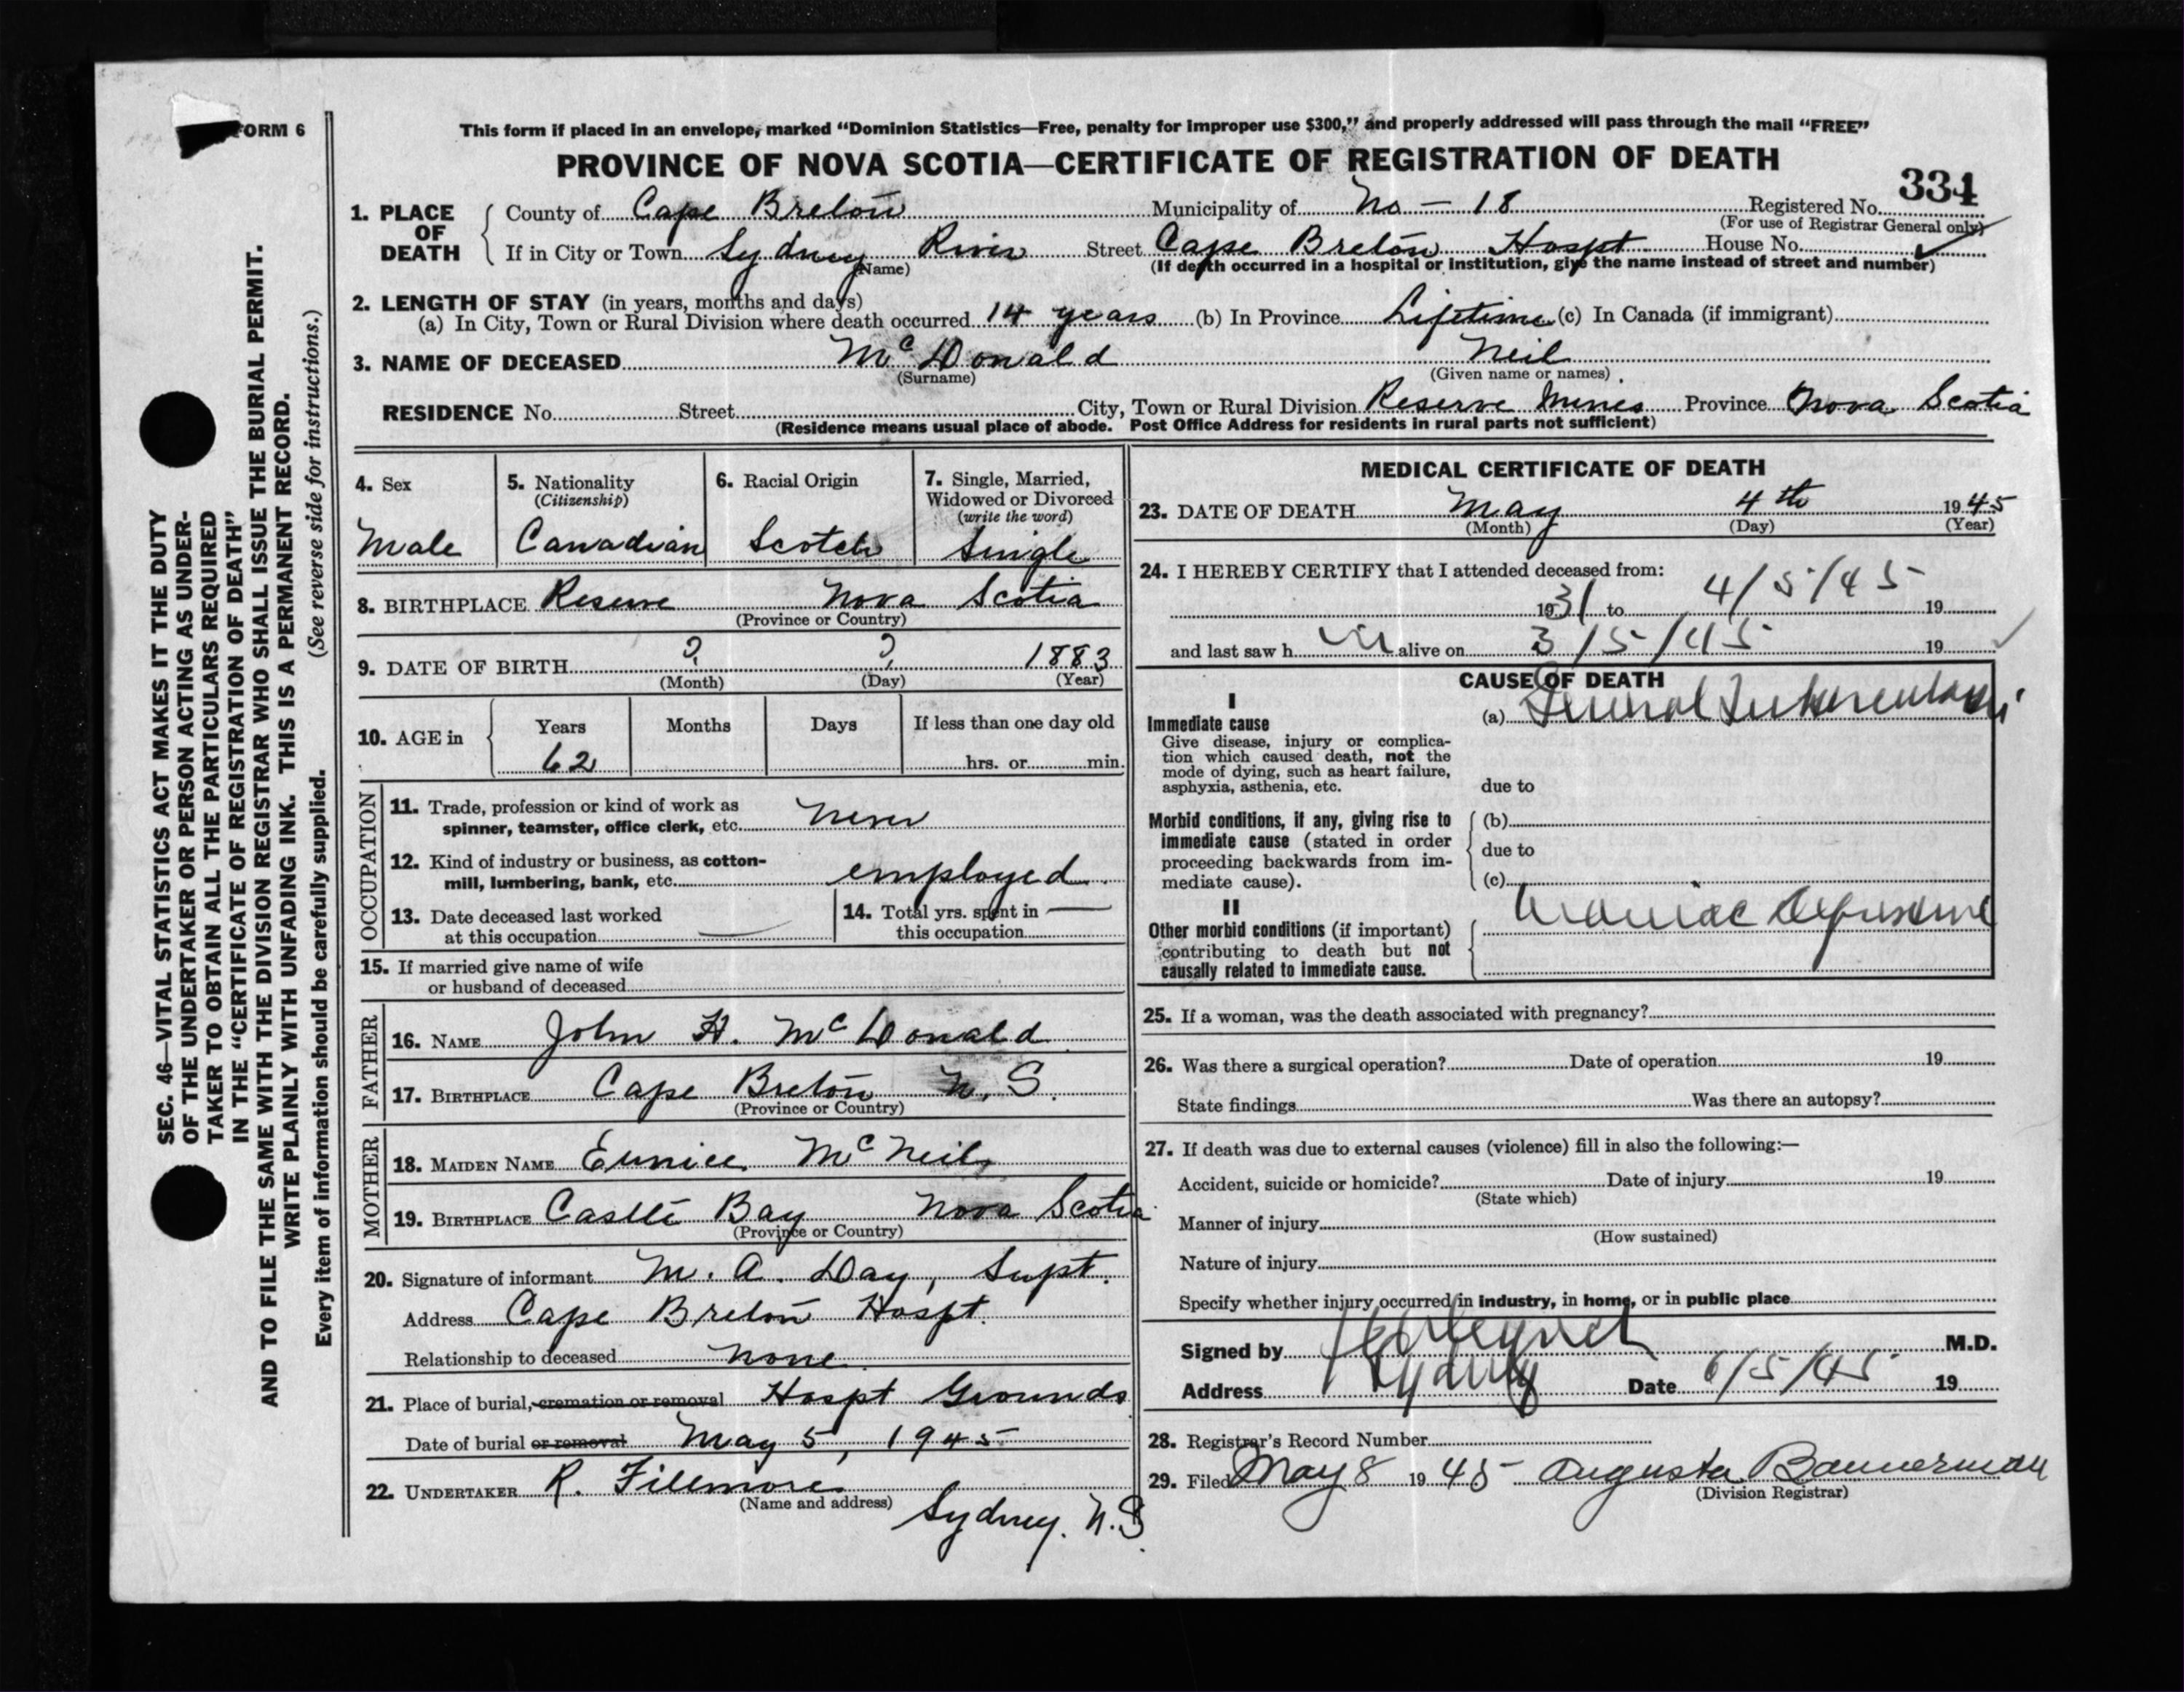 FORM 6
This form if placed in an envelope, marked “Dominion Statistics—Free, penalty for improper use $300,” and properly addressed will pass through the mail “FREE”
PROVINCE OF NOVA SCOTIA—CERTIFICATE OF REGISTRATION OF DEATH
334
1. PLACE OF DEATH
County of Cape Breton Municipality of No - 18 Registered No.
(For use of Registrar General only)
If in City or Town Sydney River Street Cape Breton Hospt. House No.
(Name)
(If death occurred in a hospital or institution, give the name instead of street and number)
2. LENGTH OF STAY (in years, months and days)
(a) In City, Town or Rural Division where death occurred 14 years (b) In Province Lifetime (c) In Canada (if immigrant)
3. NAME OF DECEASED McDonald Neil
(Surname) (Given name or names)
RESIDENCE No. Street City, Town or Rural Division Reserve Mines Province Nova Scotia
(Residence means usual place of abode. Post Office Address for residents in rural parts not sufficient)
4. Sex
Male
5. Nationality
(Citizenship)
Canadian
6. Racial Origin
Scotch
7. Single, Married,
Widowed or Divorced
(write the word)
Single
8. BIRTHPLACE Reserve Nova Scotia
(Province or Country)
9. DATE OF BIRTH ? ? 1883
(Month) (Day) (Year)
10. AGE in
Years Months Days If less than one day old
62 hrs. or min.
OCCUPATION
11. Trade, profession or kind of work as
spinner, teamster, office clerk, etc. Never
12. Kind of industry or business, as cotton-
mill, lumbering, bank, etc. employed.
13. Date deceased last worked
at this occupation
14. Total yrs. spent in —
this occupation
15. If married give name of wife
or husband of deceased
FATHER
16. NAME John H. McDonald
17. BIRTHPLACE Cape Breton N. S.
(Province or Country)
MOTHER
18. MAIDEN NAME Eunice McNeil
19. BIRTHPLACE Castle Bay Nova Scotia
(Province or Country)
20. Signature of informant M. A. Day, Supt.
Address Cape Breton Hospt.
Relationship to deceased none.
21. Place of burial, cremation or removal Hospt Grounds
Date of burial or removal May 5, 1945
22. UNDERTAKER R. Fillmore
(Name and address)
Sydney. N.S.
MEDICAL CERTIFICATE OF DEATH
23. DATE OF DEATH May 4th 1945
(Month) (Day) (Year)
24. I HEREBY CERTIFY that I attended deceased from:
1931 to 4/5/45 19
and last saw h alive on 3/5/45 19
CAUSE OF DEATH
I
Immediate cause
Give disease, injury or complica-
tion which caused death, not the
mode of dying, such as heart failure,
asphyxia, asthenia, etc.
(a) General Tuberculosis
due to
Morbid conditions, if any, giving rise to
immediate cause (stated in order
proceeding backwards from im-
mediate cause).
(b)
due to
(c)
II
Other morbid conditions (if important)
contributing to death but not
causally related to immediate cause.
Maniac Depressive
25. If a woman, was the death associated with pregnancy?
26. Was there a surgical operation? Date of operation 19
State findings Was there an autopsy?
27. If death was due to external causes (violence) fill in also the following:—
Accident, suicide or homicide? Date of injury 19
(State which)
Manner of injury
(How sustained)
Nature of injury
Specify whether injury occurred in industry, in home, or in public place
Signed by M.D.
Address Sydney Date 6/5/45 19
28. Registrar's Record Number
29. Filed May 8 1945 Augusta Bannerman
(Division Registrar)
SEC. 46—VITAL STATISTICS ACT MAKES IT THE DUTY
OF THE UNDERTAKER OR PERSON ACTING AS UNDER-
TAKER TO OBTAIN ALL THE PARTICULARS REQUIRED
IN THE “CERTIFICATE OF REGISTRATION OF DEATH”
AND TO FILE THE SAME WITH THE DIVISION REGISTRAR WHO SHALL ISSUE THE BURIAL PERMIT.
WRITE PLAINLY WITH UNFADING INK. THIS IS A PERMANENT RECORD.
Every item of information should be carefully supplied. (See reverse side for instructions.)